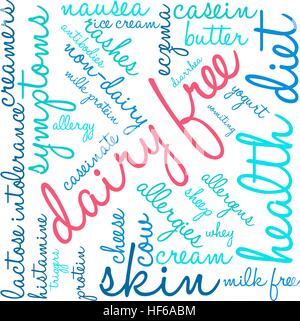 nausea
casein
ice cream
eczema
butter
antibodies
rashes
creamers
symptoms
non-dairy
milk protein
diarrhea
yogurt
diet
allergy
caseinate
vomiting
dairy free
health
lactose intolerance
histamine
triggers
protein
cheese
cow
allergies
allergens
sheep
whey
cream
skin
milk free
alamy
HF6ABM